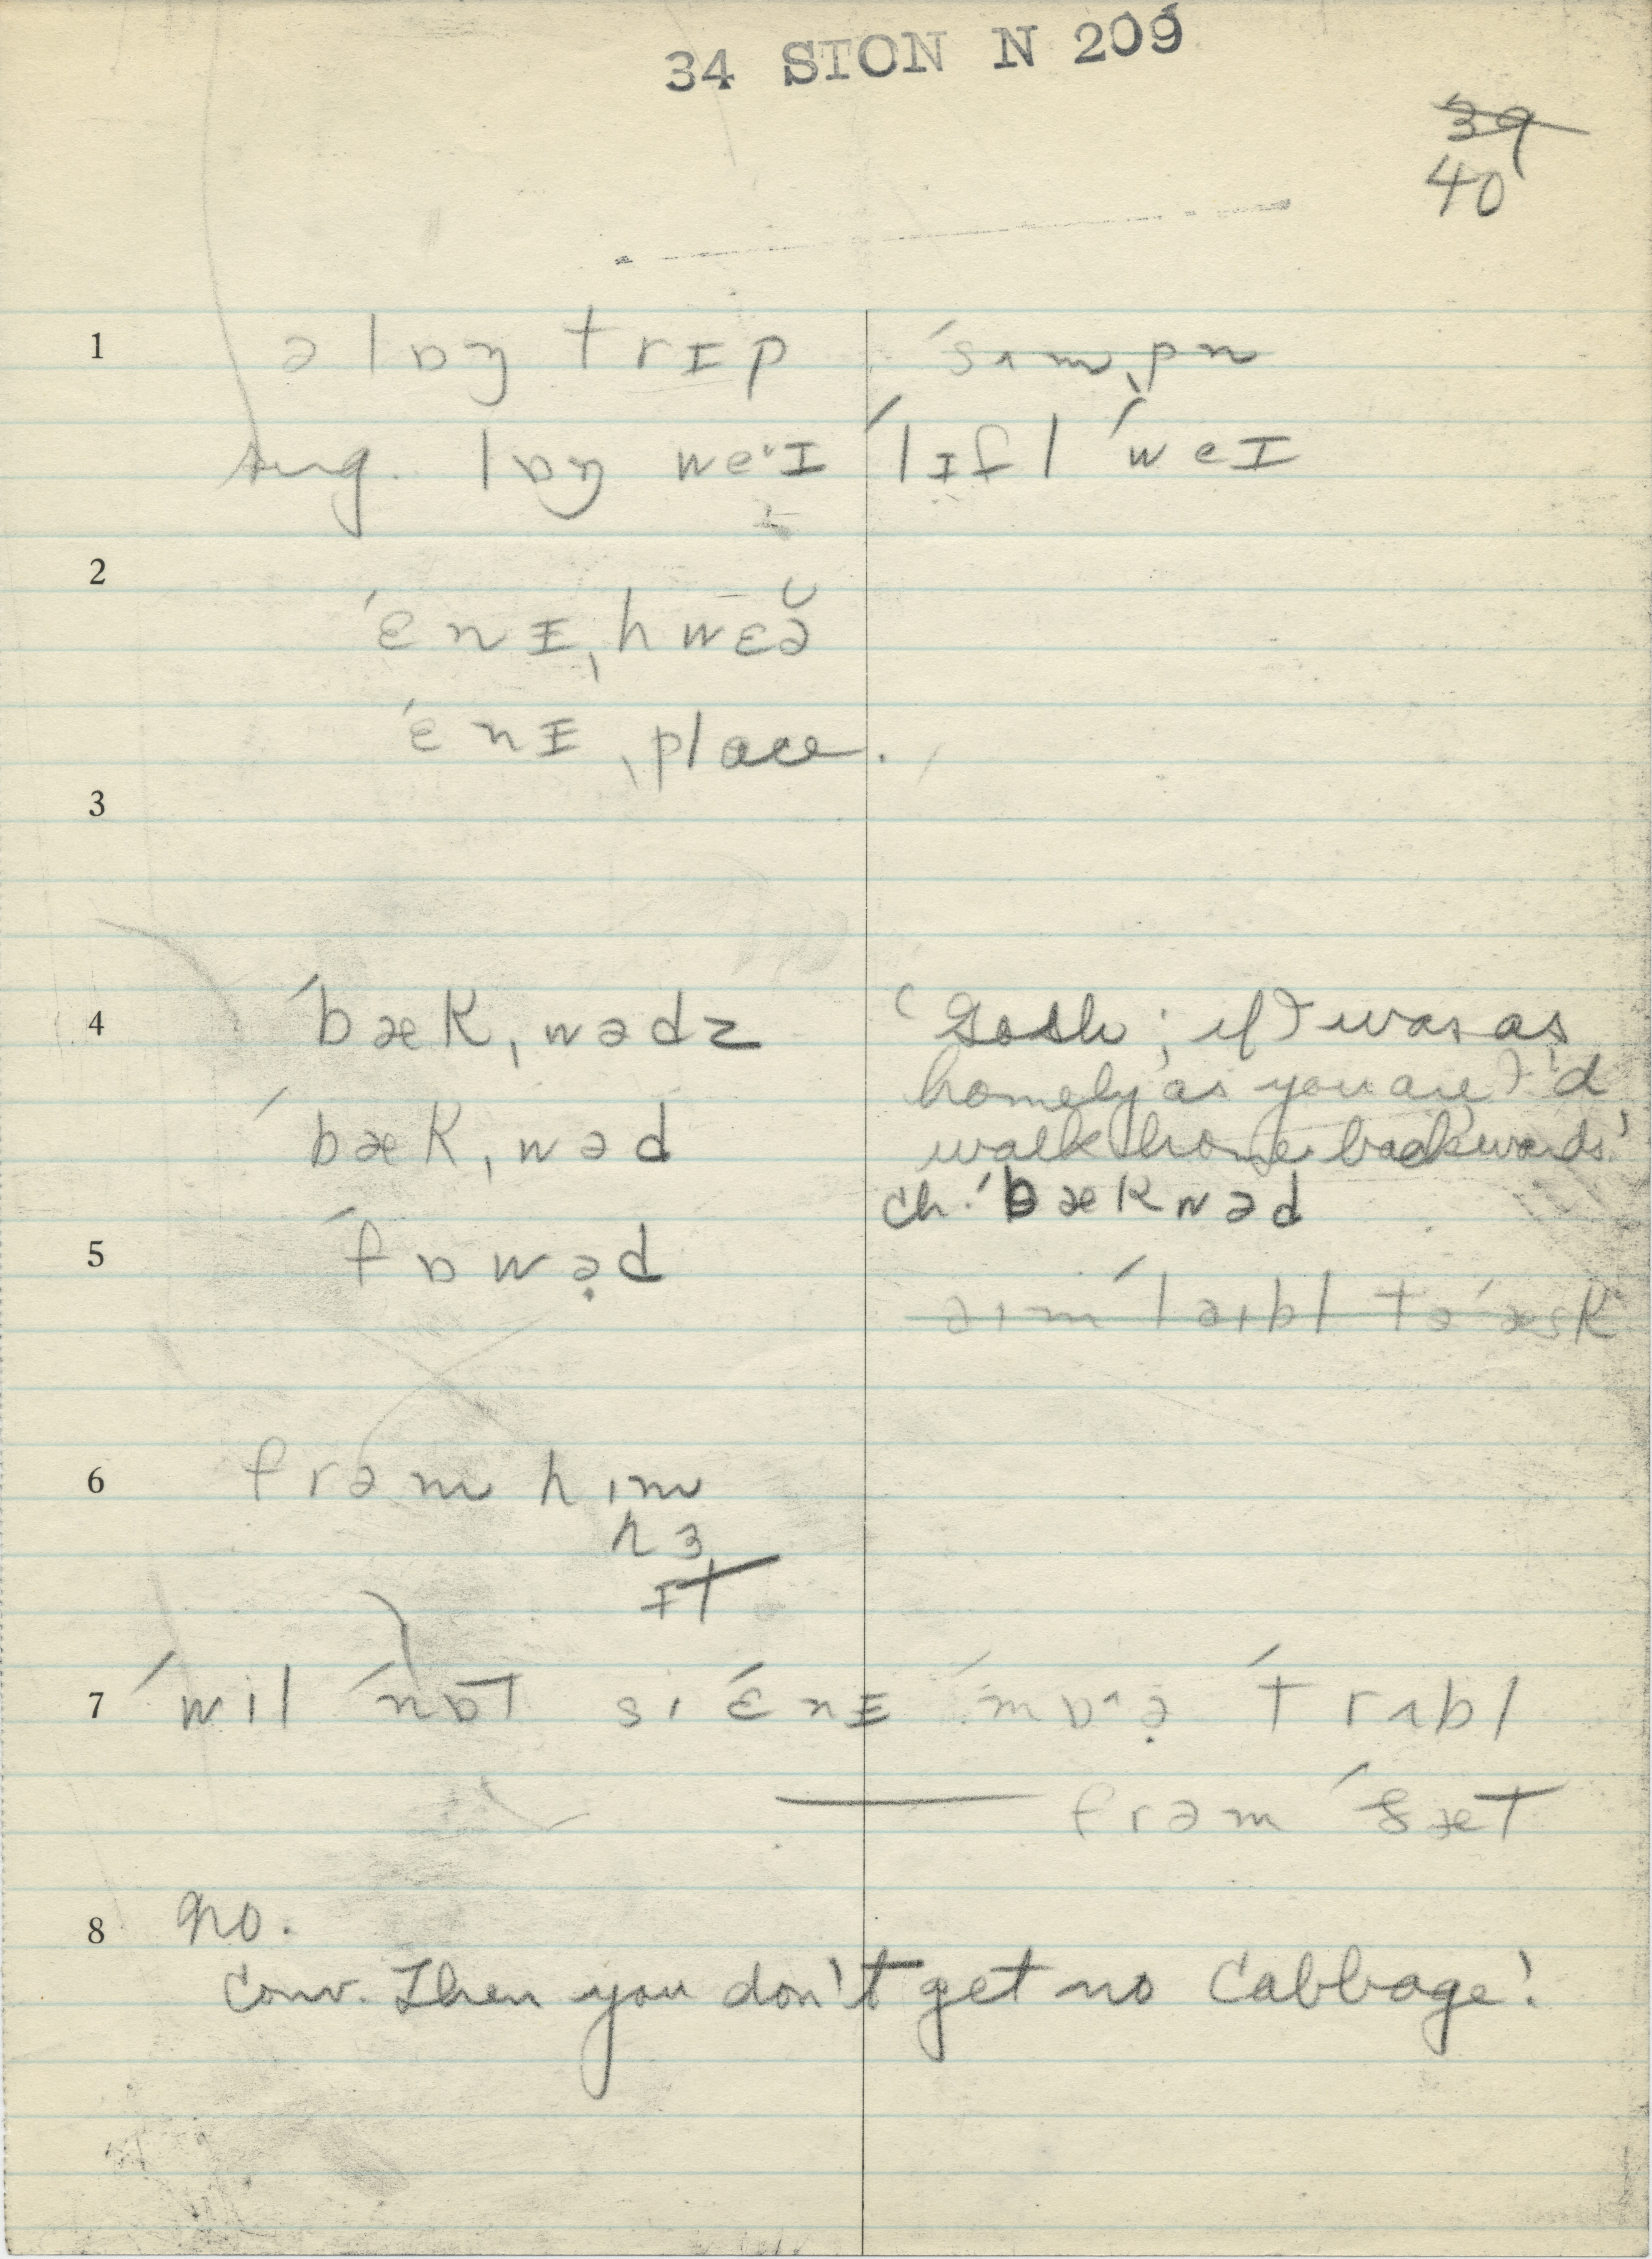 34 STON N 209
39
40
1 ə lɒŋ trɪp ˈsʌmˌpn
sug. lɒŋ weˑɪ ˈlɪfl ˈweɪ
2
ˈɛnɪˌhwɛə̆
ˈɛnɪˌplace.
3
4 ˈbækˌwədz 'Gosh; if I was as
homely as you are I'd
ˈbækˌwəd walk home backwards.'
ch. ˈbækwəd
5 ˈfɒwə̣d
əɪm ˈlaɪbl tə ˈæsk
6 frəm hɪm
hɜ
ɪt
7 ˈwil ˈnɒt si ˈɛnɪ ˈmɒˑə̣ ˈtrʌbl
— frəm ˈðæt
8 no.
Conv. Then you don't get no Cabbage!